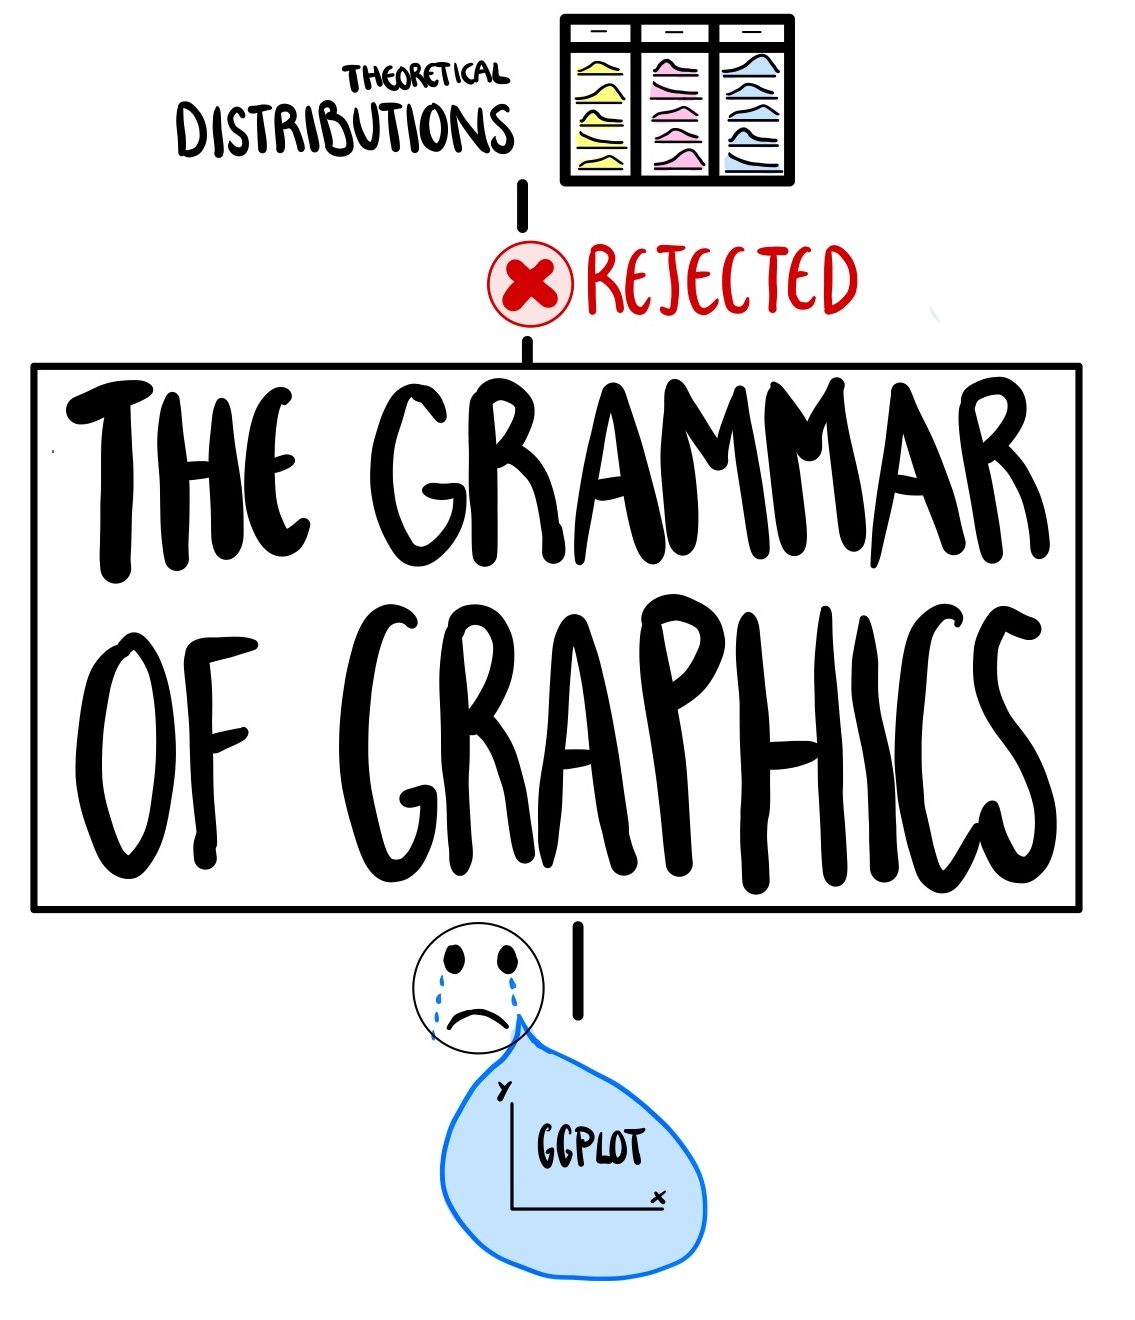 THEORETICAL
DISTRIBUTIONS
REJECTED
THE GRAMMAR
OF GRAPHICS
Y
GGPLOT
X